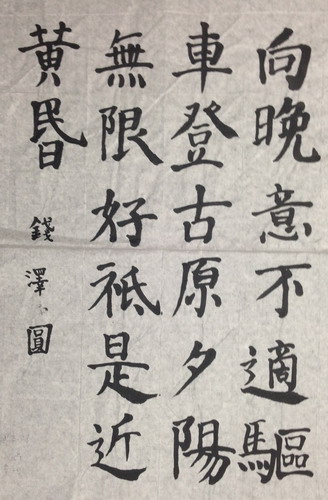 向晚意不適驅
車登古原夕陽
無限好祇是近
黃昬
錢澤圓